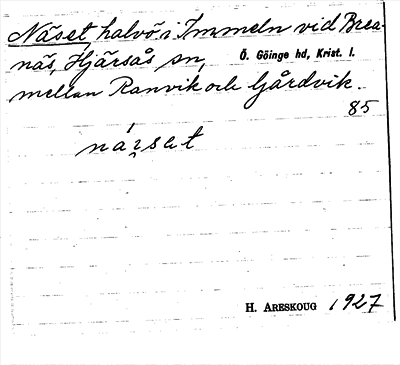 Näset halvö i Immeln vid Brea-
näs, Hjärsås sn, Ö. Göinge hd, Krist. l.
mellan Ranvik och Gårdvik.
85
H. ARESKOUG 1927